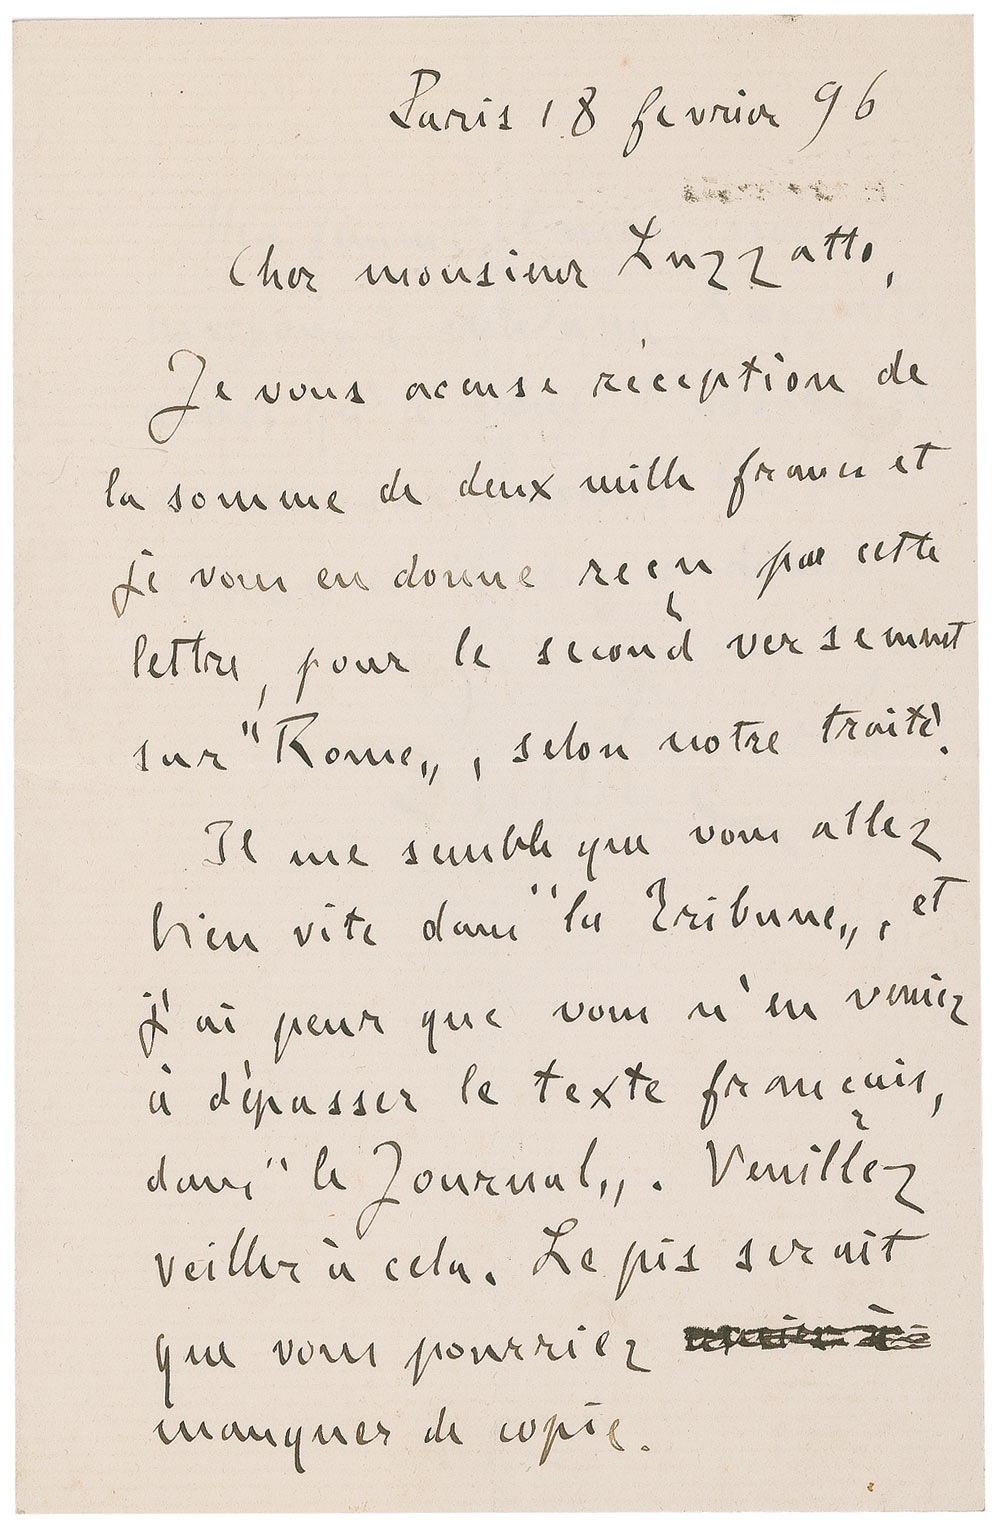 Paris 18 fevrier 96
Cher monsieur Luzzatto,
Je vous accuse réception de
la somme de deux mille francs et
je vous en donne reçu par cette
lettre, pour le second versement
sur "Rome„, selon notre traité.
Il me semble que vous allez
bien vite dans "la Tribune„, et
j'ai peur que vous n'en veniez
à dépasser le texte français,
dans "le Journal„. Veuillez
veiller à cela. Le pis serait
que vous pourriez
manquer de copie.